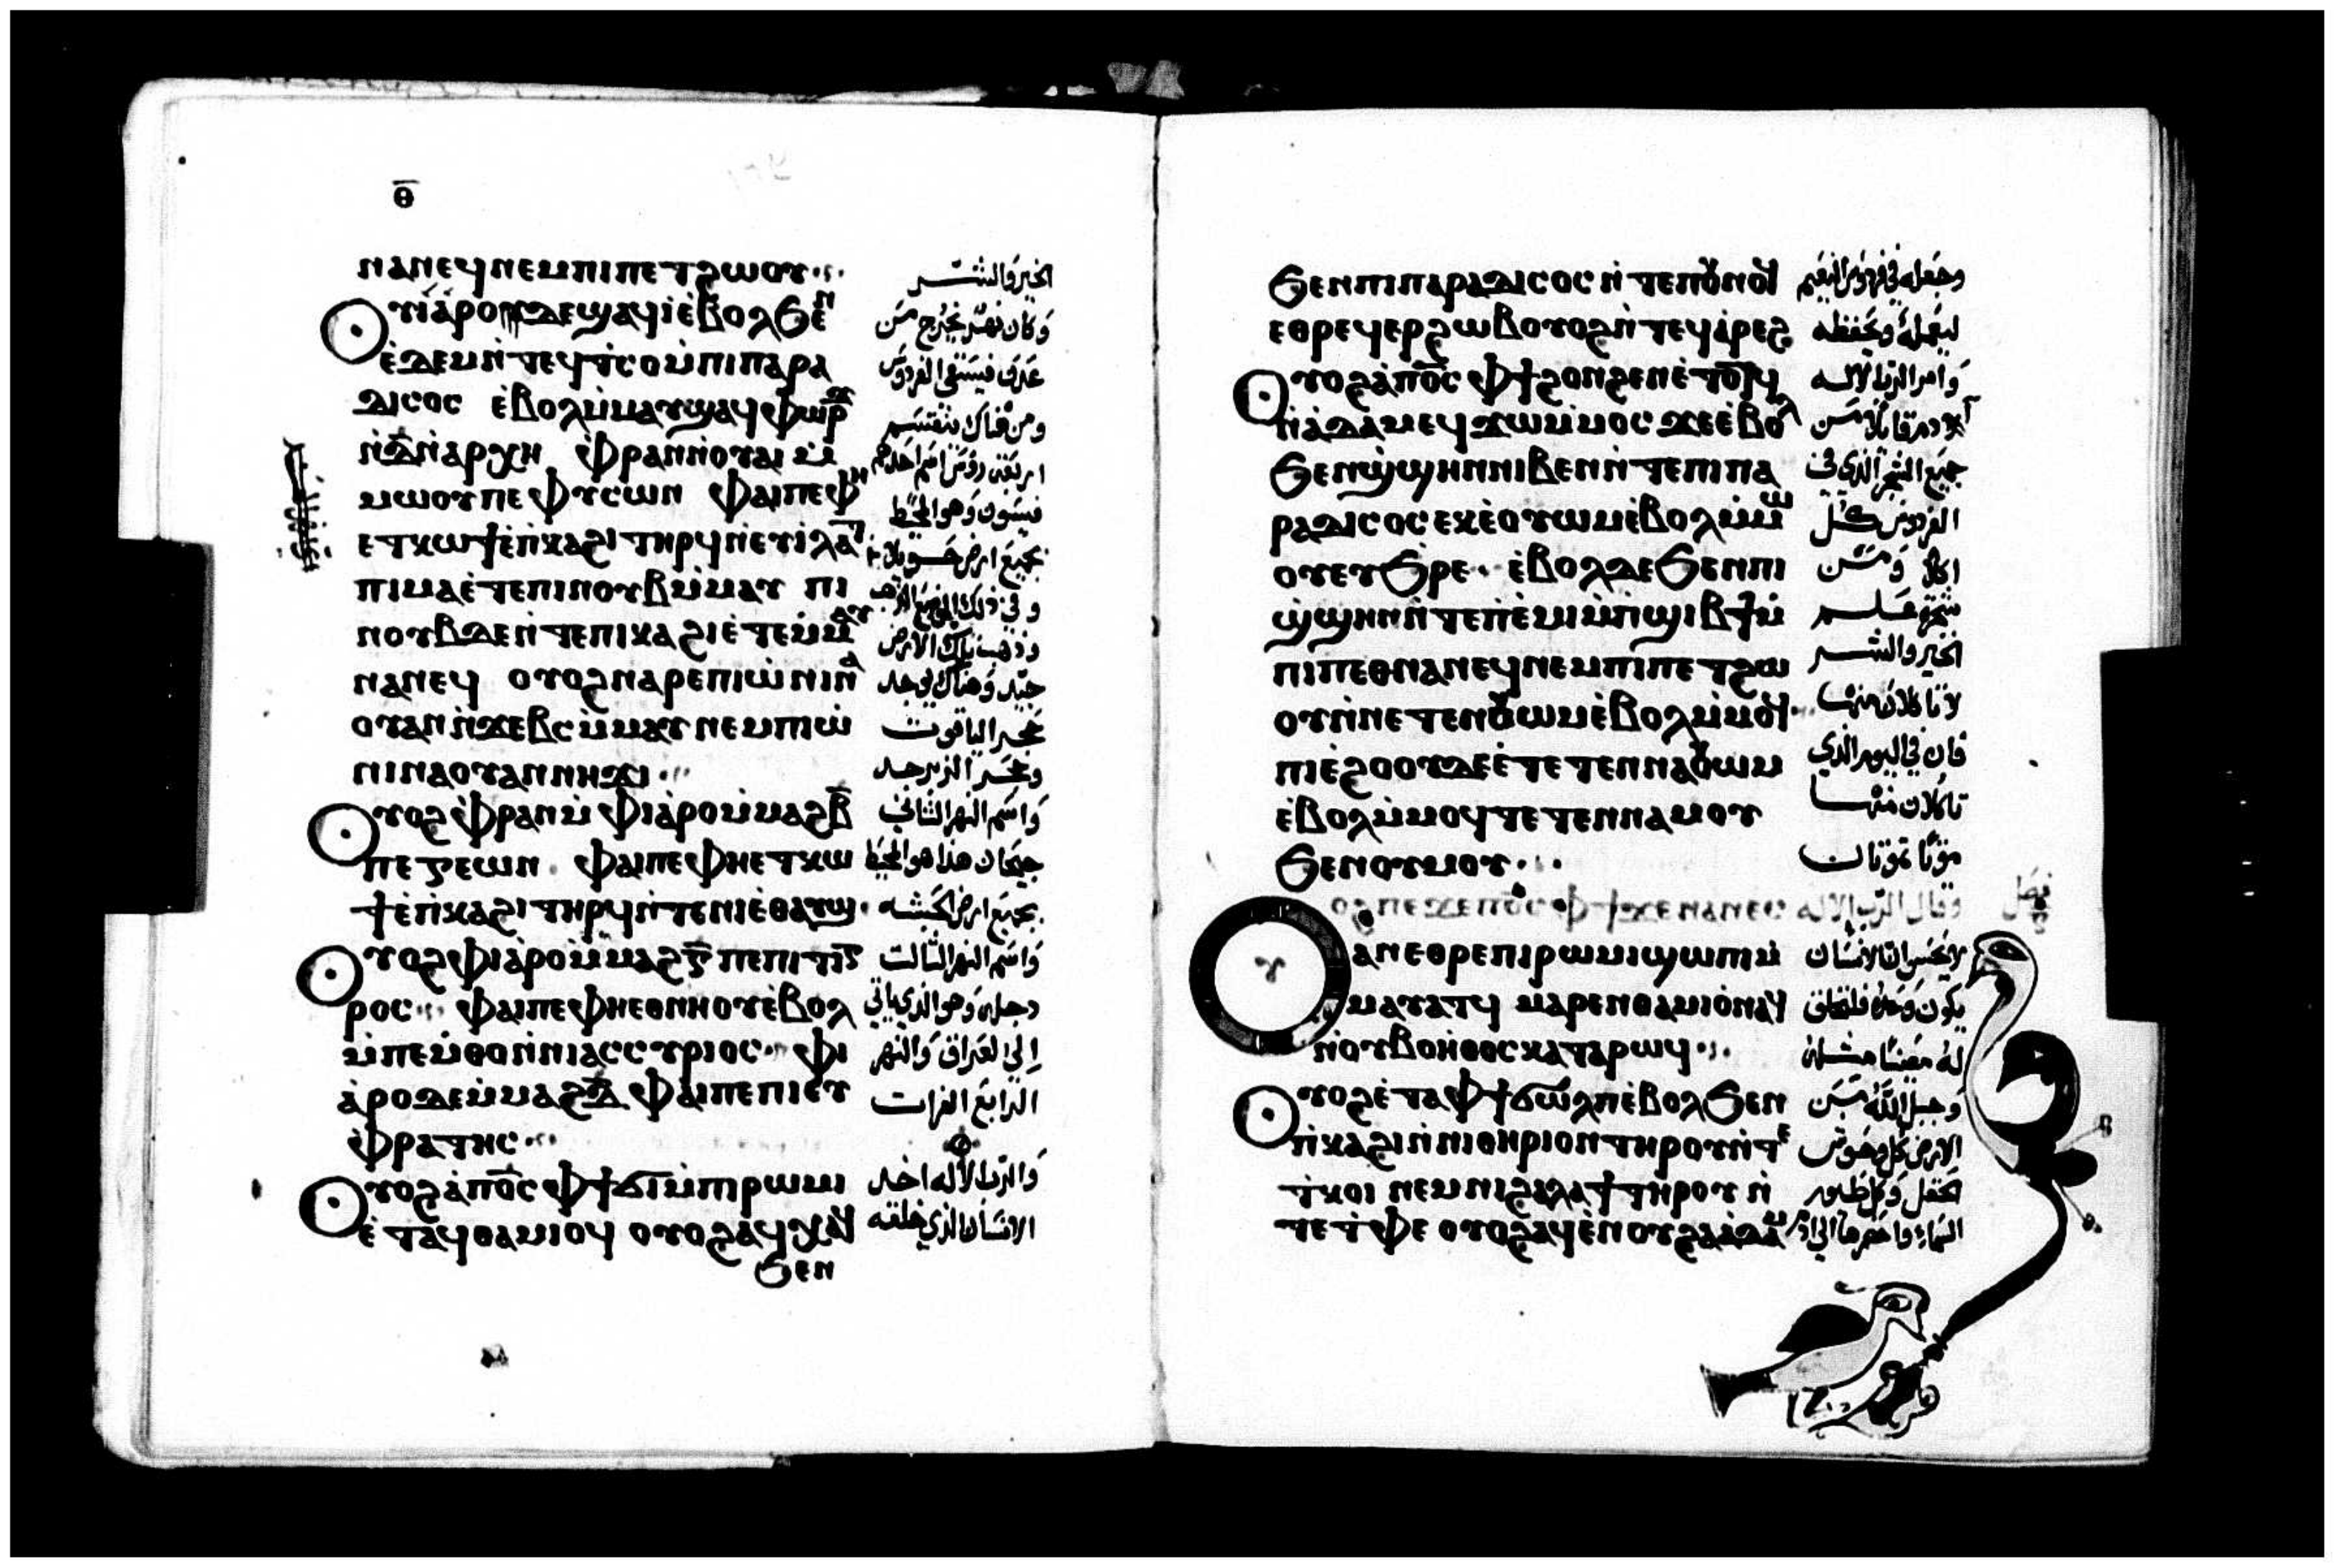 ⲑ̅
ⲛⲁⲛⲉϥ ⲛⲉⲙ ⲡⲓⲡⲉⲧϩⲱⲟⲩ
ⲟⲩⲓⲁⲣⲟ ⲇⲉ ϣⲁϥⲓ ⲉ̀ⲃⲟⲗ ϧⲉⲛ
ⲉ̀ⲇⲉⲙ ⲛ̀ⲧⲉϥⲧ̀ⲥⲟ ⲙ̀ⲡⲓⲡⲁⲣⲁ
ⲇⲓⲥⲟⲥ ⲉ̀ⲃⲟⲗ ⲙ̀ⲙⲁⲩ ϣⲁϥⲫⲱⲣϫ
ⲛ̀ⲇ̅ ⲛ̀ⲁⲣⲭⲏ ⲫ̀ⲣⲁⲛ ⲛ̀ⲟⲩⲁⲓ ⲙ̀
ⲙⲱⲟⲩ ⲡⲉ ⲫⲩⲥⲱⲛ ⲫⲁⲓ ⲡⲉ ⲫⲏ
ⲉⲧⲕⲱϯ ⲉ̀ⲡ̀ⲕⲁϩⲓ ⲧⲏⲣϥ ⲛ̀ⲉⲩⲓⲗⲁⲧ
ⲡⲓⲙⲁ ⲉ̀ⲧⲉ ⲡⲓⲛⲟⲩⲃ ⲙ̀ⲙⲁⲩ ⲡⲓ
ⲛⲟⲩⲃ ⲇⲉ ⲛ̀ⲧⲉ ⲡⲓⲕⲁϩⲓ ⲉ̀ⲧⲉⲙ̀ⲙⲁⲩ
ⲛⲁⲛⲉϥ ⲟⲩⲟϩ ⲛⲁⲣⲉ ⲡⲓⲱ̀ⲛⲓ ⲛⲁ
ⲟⲩⲁⲛ ⲛ̀ϫⲉⲃⲥ ⲙ̀ⲙⲁⲩ ⲛⲉⲙ ⲡⲓⲱ̀
ⲛⲓ ⲛⲁⲟⲩⲁⲛ ⲛⲏϫⲓ
ⲟⲩⲟϩ ⲫ̀ⲣⲁⲛ ⲙ̀ⲫⲓⲁⲣⲟ ⲙ̀ⲙⲁϩⲃ̅
ⲡⲉ ⲅⲉⲱⲛ ⲫⲁⲓ ⲡⲉ ⲫⲏ ⲉⲧⲕⲱ
ϯ ⲉ̀ⲡ̀ⲕⲁϩⲓ ⲧⲏⲣϥ ⲛ̀ⲧⲉ ⲛⲓⲉ̀ⲑⲁⲩϣ
ⲟⲩⲟϩ ⲫⲓⲁⲣⲟ ⲙ̀ⲙⲁϩⲅ̅ ⲡⲉ ⲡⲓⲧⲓⲅ
ⲣⲟⲥ ⲫⲁⲓ ⲡⲉ ⲫⲏ ⲉⲑⲛⲏⲟⲩ ⲉ̀ⲃⲟⲗ
ⲙ̀ⲡⲉⲙ̀ⲑⲟ ⲛ̀ⲛⲓⲁⲥⲥⲩⲣⲓⲟⲥ ⲫⲓ
ⲁ̀ⲣⲟ ⲇⲉ ⲙ̀ⲙⲁϩⲇ̅ ⲫⲁⲓ ⲡⲉ ⲡⲓⲉⲩ
ⲫⲣⲁⲧⲏⲥ
ⲟⲩⲟϩ ⲁ̀ⲡⲟ̅ⲥ̅ ⲫϯ ϭⲓ ⲙ̀ⲡⲓⲣⲱⲙⲓ
ⲉ̀ⲧⲁϥⲑⲁⲙⲓⲟϥ ⲟⲩⲟϩ ⲁϥⲭⲁϥ
ϧⲉⲛ
الخير والشر
وكان نهر يخرج من
عدن فيسقي الفردوس
ومن هناك ينقسم
اربعة رؤس اسم احدهم
فيسون وهو المحيط
بجميع ارض حويلا
وفي ذلك الموضع الذهب
وذهب تلك الارض
جيد وهناك يوجد
حجر الياقوت
وحجر الزبرجد
واسم النهر الثاني
جيحان هذا هو المحيط
بجميع ارض الحبشه
واسم النهر الثالث
دجله وهو الذي ياتي
الي العراق والنهر
الرابع الفرات
والرب الاله اخد
الانسان الذي خلقه
ϧⲉⲛ ⲡⲓⲡⲁⲣⲁⲇⲓⲥⲟⲥ ⲛ̀ⲧⲉ ⲡⲟⲩⲛⲟϥ
ⲉⲑⲣⲉϥⲉⲣϩⲱⲃ ⲟⲩⲟϩ ⲛ̀ⲧⲉϥⲁ̀ⲣⲉϩ
ⲟⲩⲟϩ ⲁ̀ⲡⲟ̅ⲥ̅ ⲫϯ ϩⲟⲛϩⲉⲛ ⲉ̀ⲧⲟⲧϥ
ⲛ̀ⲁ̀ⲇⲁⲙ ⲉϥϫⲱ ⲙ̀ⲙⲟⲥ ϫⲉ ⲉ̀ⲃⲟⲗ
ϧⲉⲛ ϣ̀ϣⲏⲛ ⲛⲓⲃⲉⲛ ⲛ̀ⲧⲉ ⲡⲓⲡⲁ
ⲣⲁⲇⲓⲥⲟⲥ ⲉⲕⲉ̀ⲟⲩⲱⲙ ⲉ̀ⲃⲟⲗ ⲙ̀ⲙⲱ
ⲟⲩ ⲉⲩϧⲣⲉ ⲉ̀ⲃⲟⲗ ⲇⲉ ϧⲉⲛ ⲡⲓ
ϣ̀ϣⲏⲛ ⲛ̀ⲧⲉ ⲡ̀ⲉ̀ⲙⲓ ⲙ̀ⲡ̀ϣⲓⲃϯ ⲙ̀
ⲡⲓⲡⲉⲑⲛⲁⲛⲉϥ ⲛⲉⲙ ⲡⲓⲡⲉⲧϩⲱ
ⲟⲩ ⲛ̀ⲛⲉⲧⲉⲛⲟⲩⲱⲙ ⲉ̀ⲃⲟⲗ ⲙ̀ⲙⲟϥ
ⲡⲓⲉ̀ϩⲟⲟⲩ ⲇⲉ ⲉ̀ⲧⲉⲧⲉⲛⲛⲁⲟⲩⲱⲙ
ⲉ̀ⲃⲟⲗ ⲙ̀ⲙⲟϥ ⲧⲉⲧⲉⲛⲛⲁⲙⲟⲩ
ϧⲉⲛ ⲟⲩⲙⲟⲩ
ⲟⲩⲟϩ ⲡⲉϫⲉ ⲡⲟ̅ⲥ̅ ⲫϯ ϫⲉ ⲛⲁⲛⲉⲥ
ⲁⲛ ⲉⲑⲣⲉ ⲡⲓⲣⲱⲙⲓ ϣⲱⲡⲓ ⲙ̀
ⲙⲁⲩⲁⲧϥ ⲙⲁⲣⲉⲛⲑⲁⲙⲓⲟ̀ ⲛⲁϥ
ⲛ̀ⲟⲩⲃⲟⲏ̀ⲑⲟⲥ ⲕⲁⲧⲁⲣⲱϥ
ⲟⲩⲟϩ ⲉ̀ⲧⲁ ⲫϯ ϭⲱⲗⲡ ⲉ̀ⲃⲟⲗ ϧⲉⲛ
ⲡ̀ⲕⲁϩⲓ ⲛ̀ⲛⲓⲑⲏⲣⲓⲟⲛ ⲧⲏⲣⲟⲩ ⲛ̀ⲧⲉ
ⲧ̀ⲕⲟⲓ ⲛⲉⲙ ⲛⲓϩⲁⲗⲁϯ ⲧⲏⲣⲟⲩ ⲛ̀
ⲧⲉ ⲧ̀ⲫⲉ ⲟⲩⲟϩ ⲁϥⲉ̀ⲛⲟⲩ ϩⲁ ⲁ̀ⲇⲁⲙ
وجعله في فردوس النعيم
ليعمله ويحفظه
وامر الرب الاله
ادم قايلا من
جميع الشجر الذي في
الفردوس كل
اكلا ومن
شجرة علم
الخير والشر
لا تاكلان منها
فان في اليوم الذي
تاكلان منها
موتا تموتان
وقال الرب الاله
لا يحسن ان الانسان
يكون وحده فلنخلق
له معينا مثله
وجبل الله من
الارض كل وحوش
الحقل وكل طيور
السماء واحضرها الي ادم
فصل